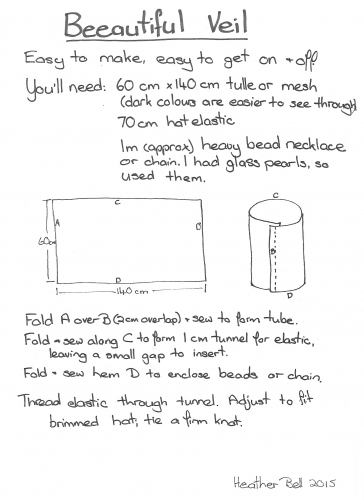 Beeautiful Veil
Easy to make, easy to get on + off!
You'll need: 60 cm x 140 cm tulle or mesh
(dark colours are easier to see through)
70cm hat elastic
1m (approx) heavy bead necklace
or chain. I had glass pearls, so
used them.
C
C
A
B
60cm
B
D
D
140 cm
Fold A over B (2cm overlap) + sew to form tube.
Fold + sew along C to form 1 cm tunnel for elastic,
leaving a small gap to insert.
Fold + sew hem D to enclose beads or chain.
Thread elastic through tunnel. Adjust to fit
brimmed hat; tie a firm knot.
Heather Bell 2015